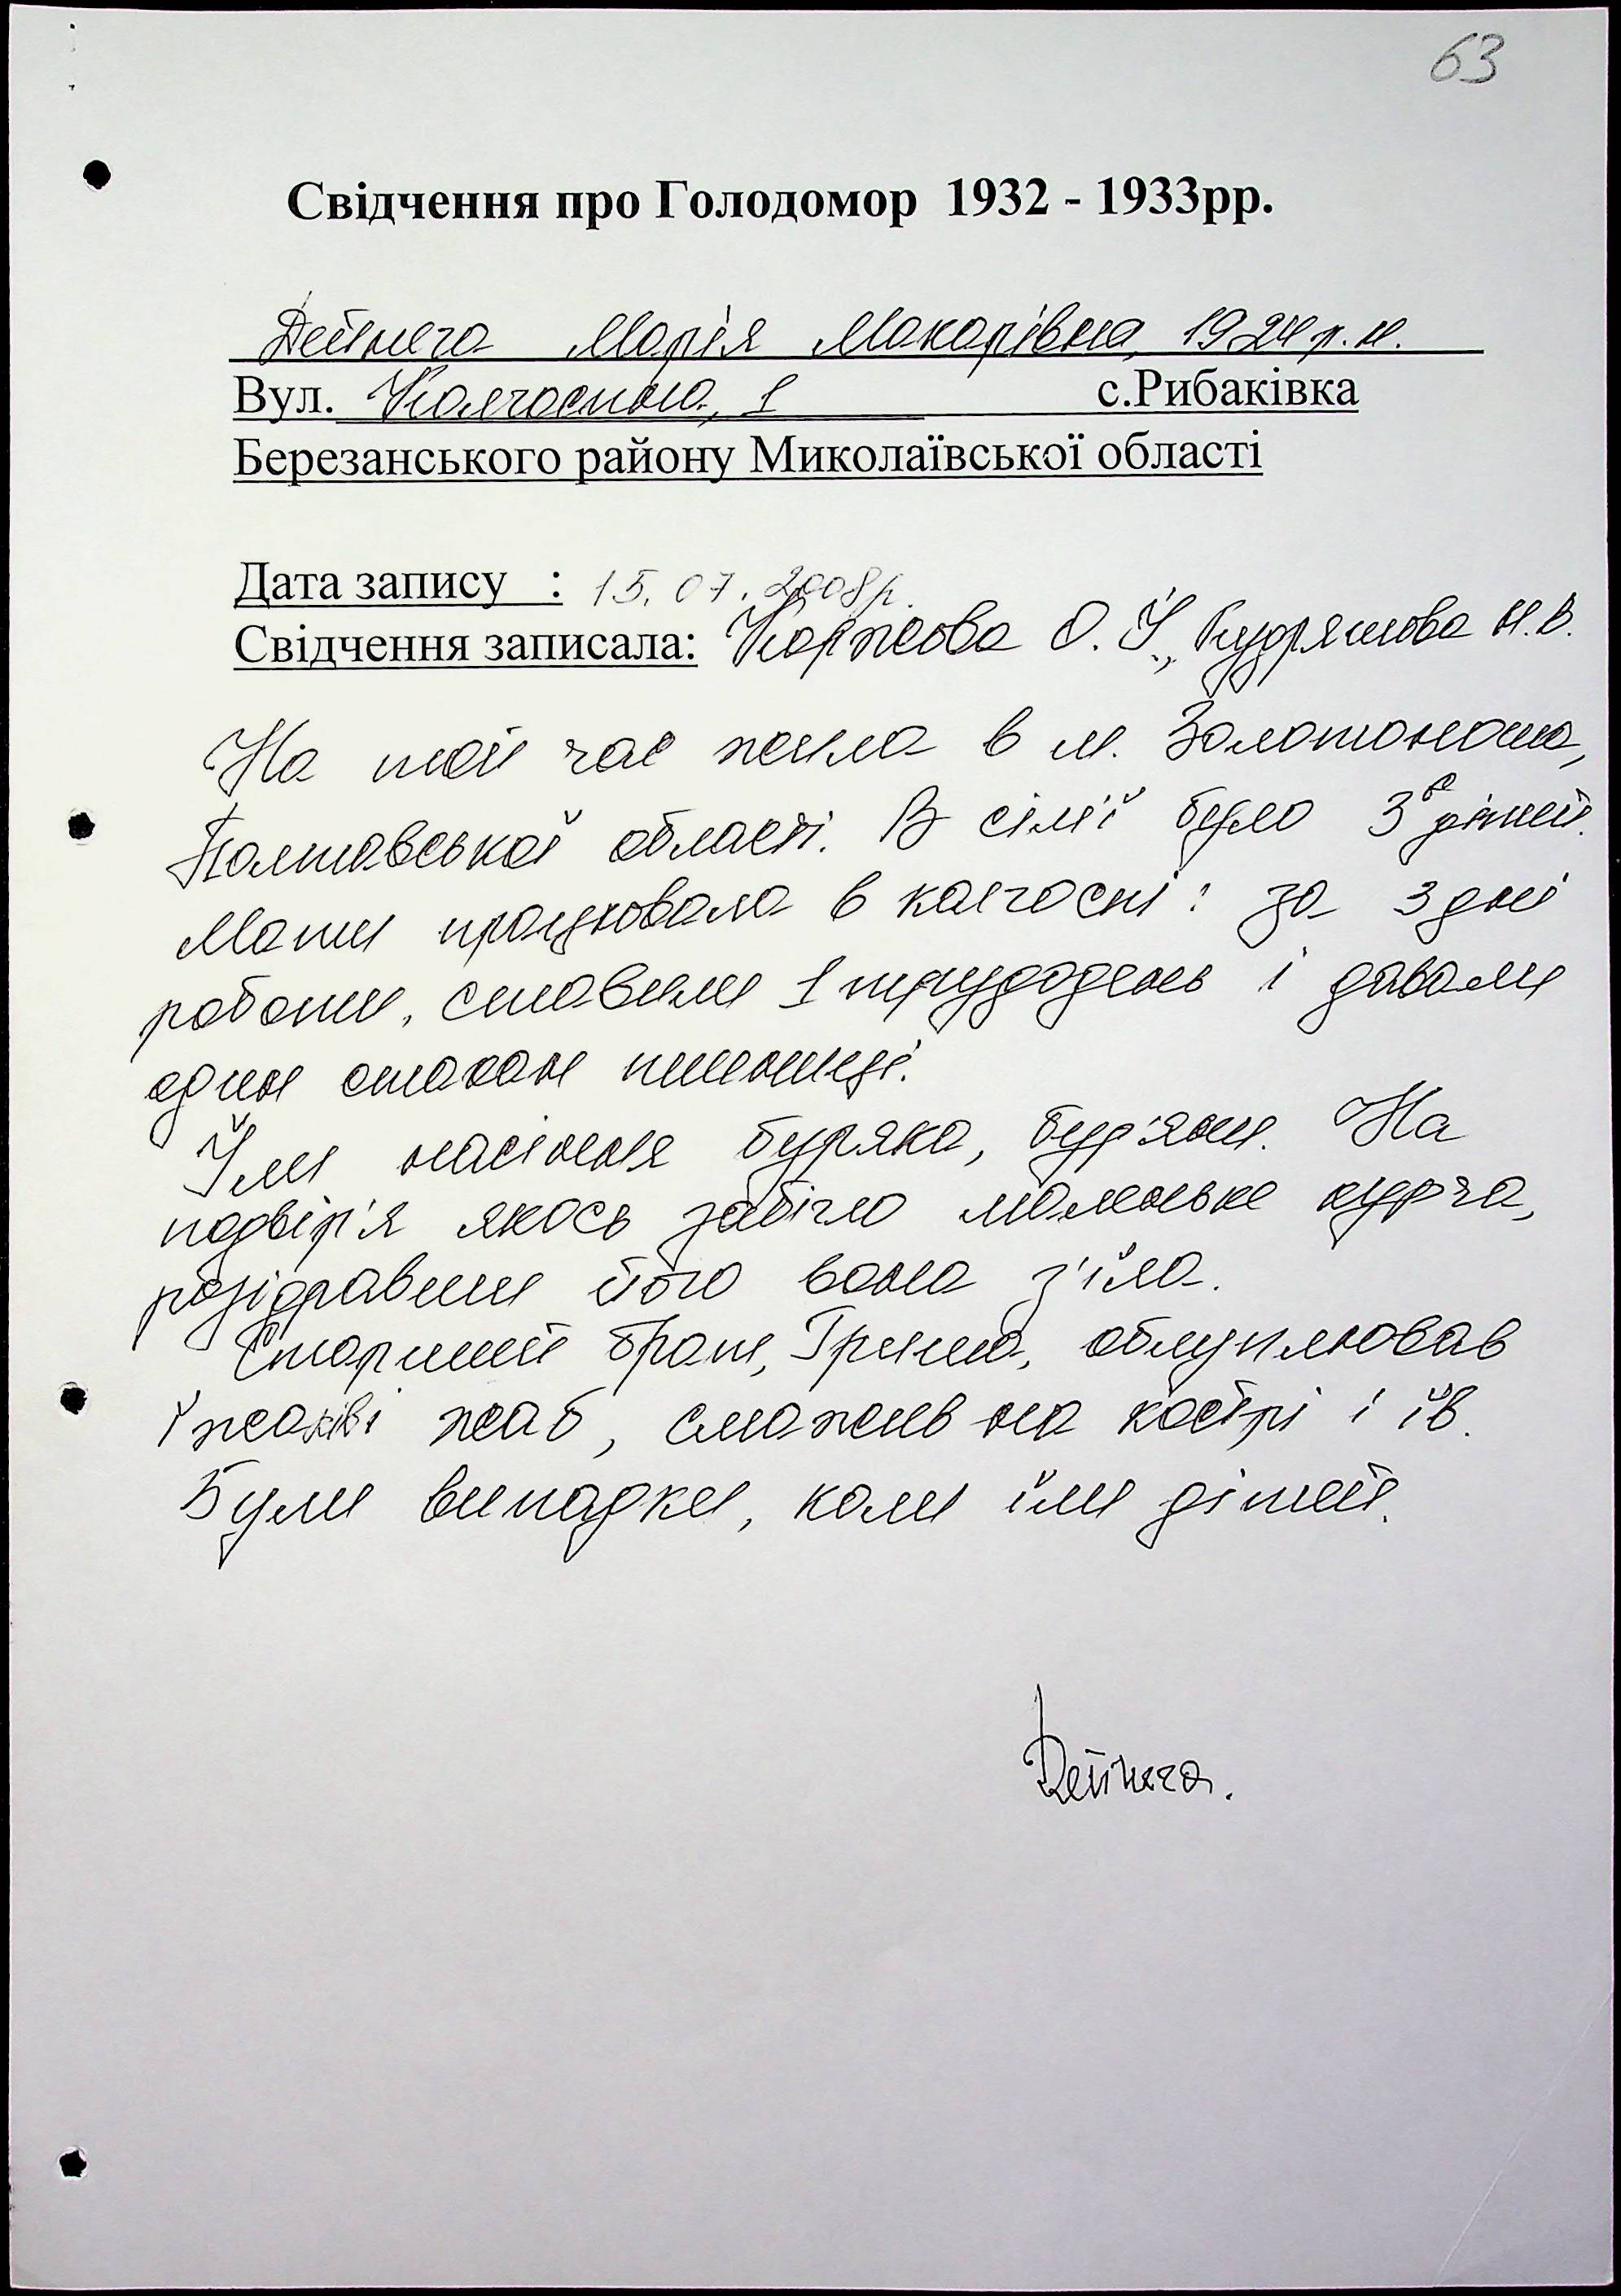 63
Свідчення про Голодомор 1932 - 1933рр.
Дейнега Марія Макарівна, 1924 р.н.
Вул. Колгоспна, 1 с.Рибаківка
Березанського району Миколаївської області
Дата запису : 15.07.2008р.
Свідчення записала: Коржова О. Й., Кудряшова Н.В.
На той час жила в м. Золотоноша,
Полтавської області. В сім'ї було 3є дітей.
Мати працювала в колгоспі: за 3 дні
роботи, ставили 1 трудодень і давали
один стакан пшениці.
Їли насіння буряка, бур'яни. На
подвір'я якось забігло маленьке курча,
розідравши його вона з'їла.
Старший брат, Гриша, облуплював
їжаків і жаб, смажив на кострі і їв.
Були випадки, коли їли дітей.
Дейнега.